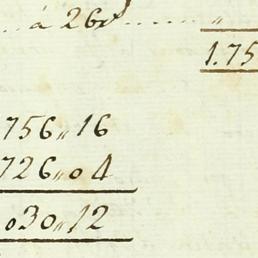 á 26 r^s
1.75
756 „ 16
726 „ 04
030 „ 12